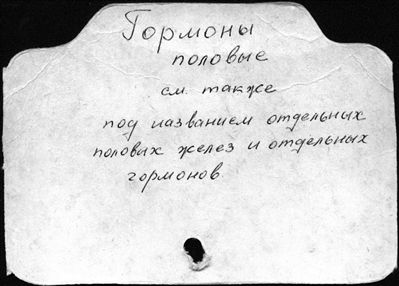 Гормоны
половые
см. также
под названием отдельных
половых желез и отдельных
гормонов.